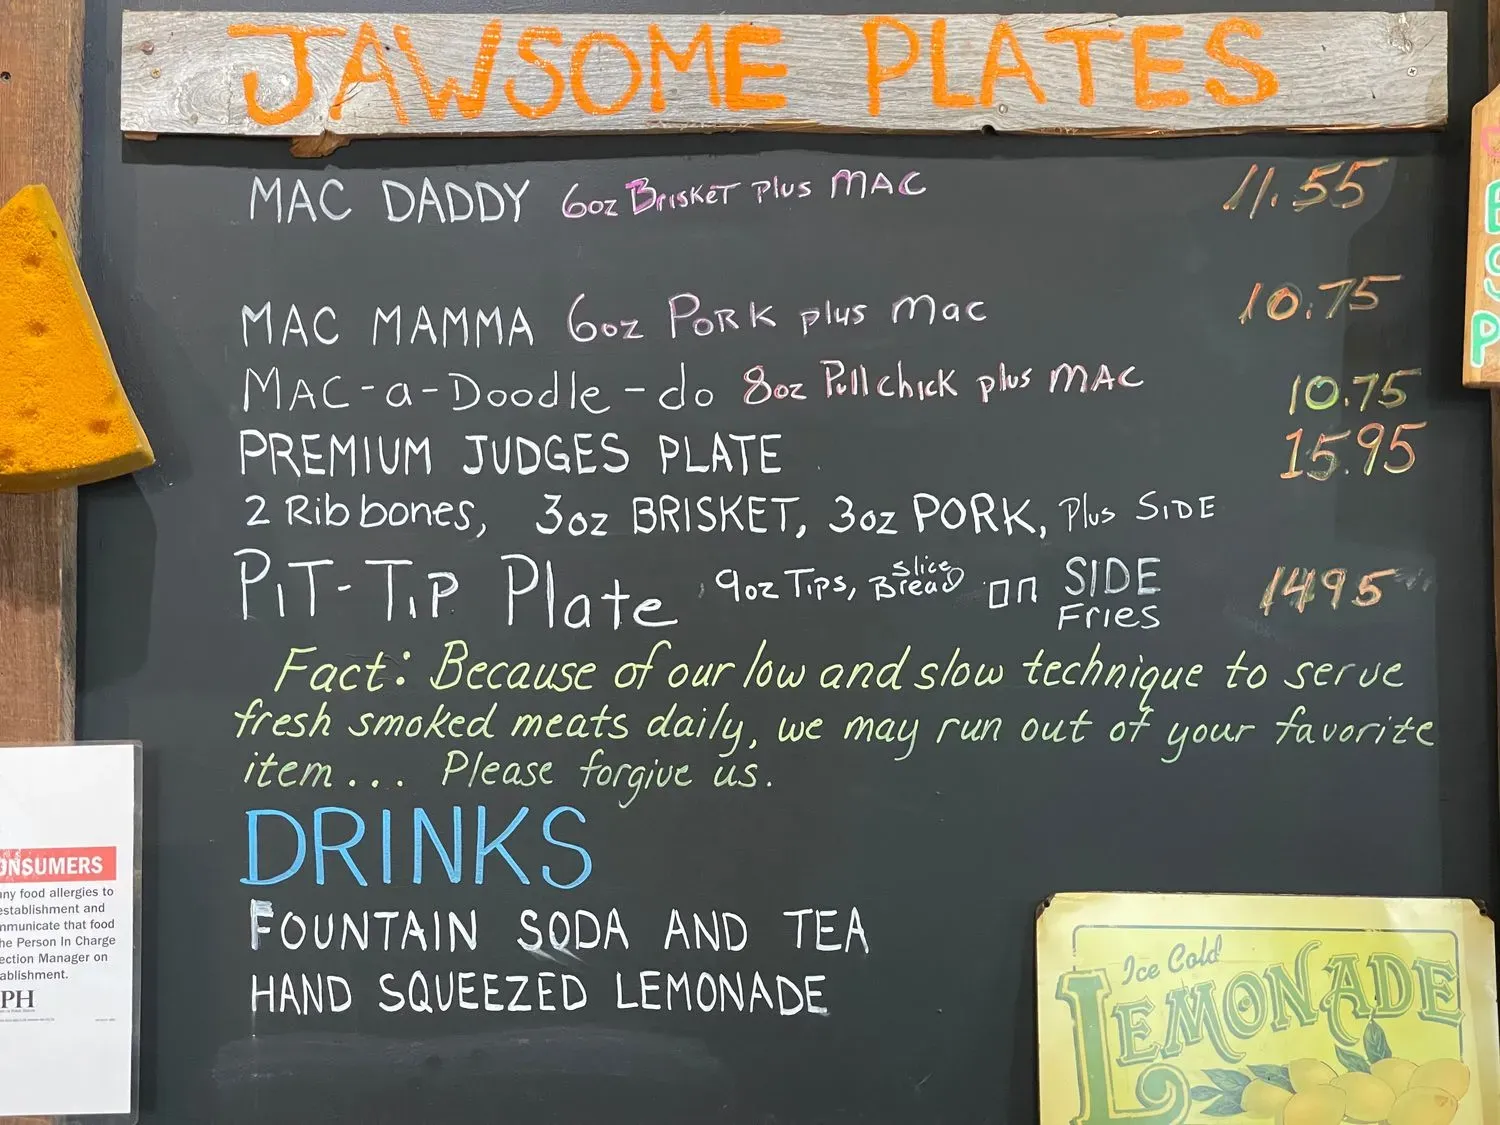 JAWSOME PLATES
MAC DADDY 6oz Brisket plus MAC 11.55
MAC MAMMA 6oz PORK plus Mac 10.75
MAC-a-Doodle-do 8oz Pull chick plus MAC 10.75
PREMIUM JUDGES PLATE 15.95
2 Rib bones, 3oz BRISKET, 3oz PORK, Plus SIDE
PIT-TIP Plate 9oz TIPS, slice Bread on SIDE Fries 1495
Fact: Because of our low and slow technique to serve
fresh smoked meats daily, we may run out of your favorite
item... Please forgive us.
DRINKS
FOUNTAIN SODA AND TEA
HAND SQUEEZED LEMONADE
ONSUMERS
any food allergies to
establishment and
mmunicate that food
he Person In Charge
ection Manager on
ablishment.
PH
Ice Cold
LEMONADE